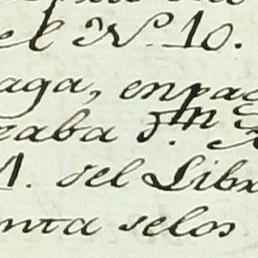 el N.º 10.
aga, enpag
raba
1. del Libr
nta selos